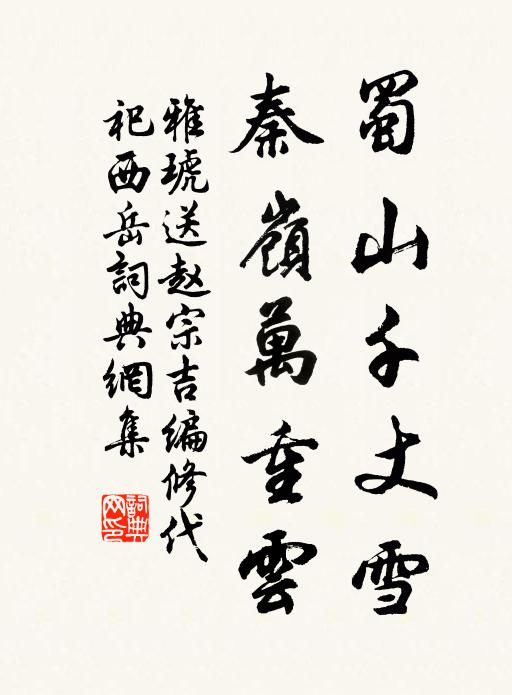 蜀山千丈雪
秦嶺萬重雲
雅琥送赵宗吉編修代
祀西岳詞典網集
詞典
网印